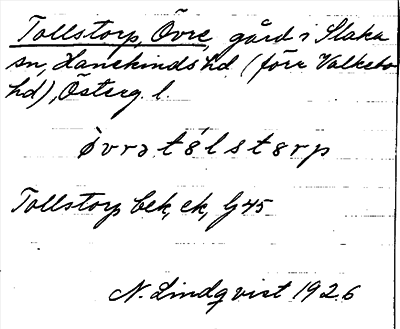 Tollstorp, Övre, gård i Slaka
sn, Hanekinds hd (förr Valkebo
hd), Österg. l.
òvrə tól storp
Tollstorp bek, ek, Gj 45
N. Lindqvist 1926